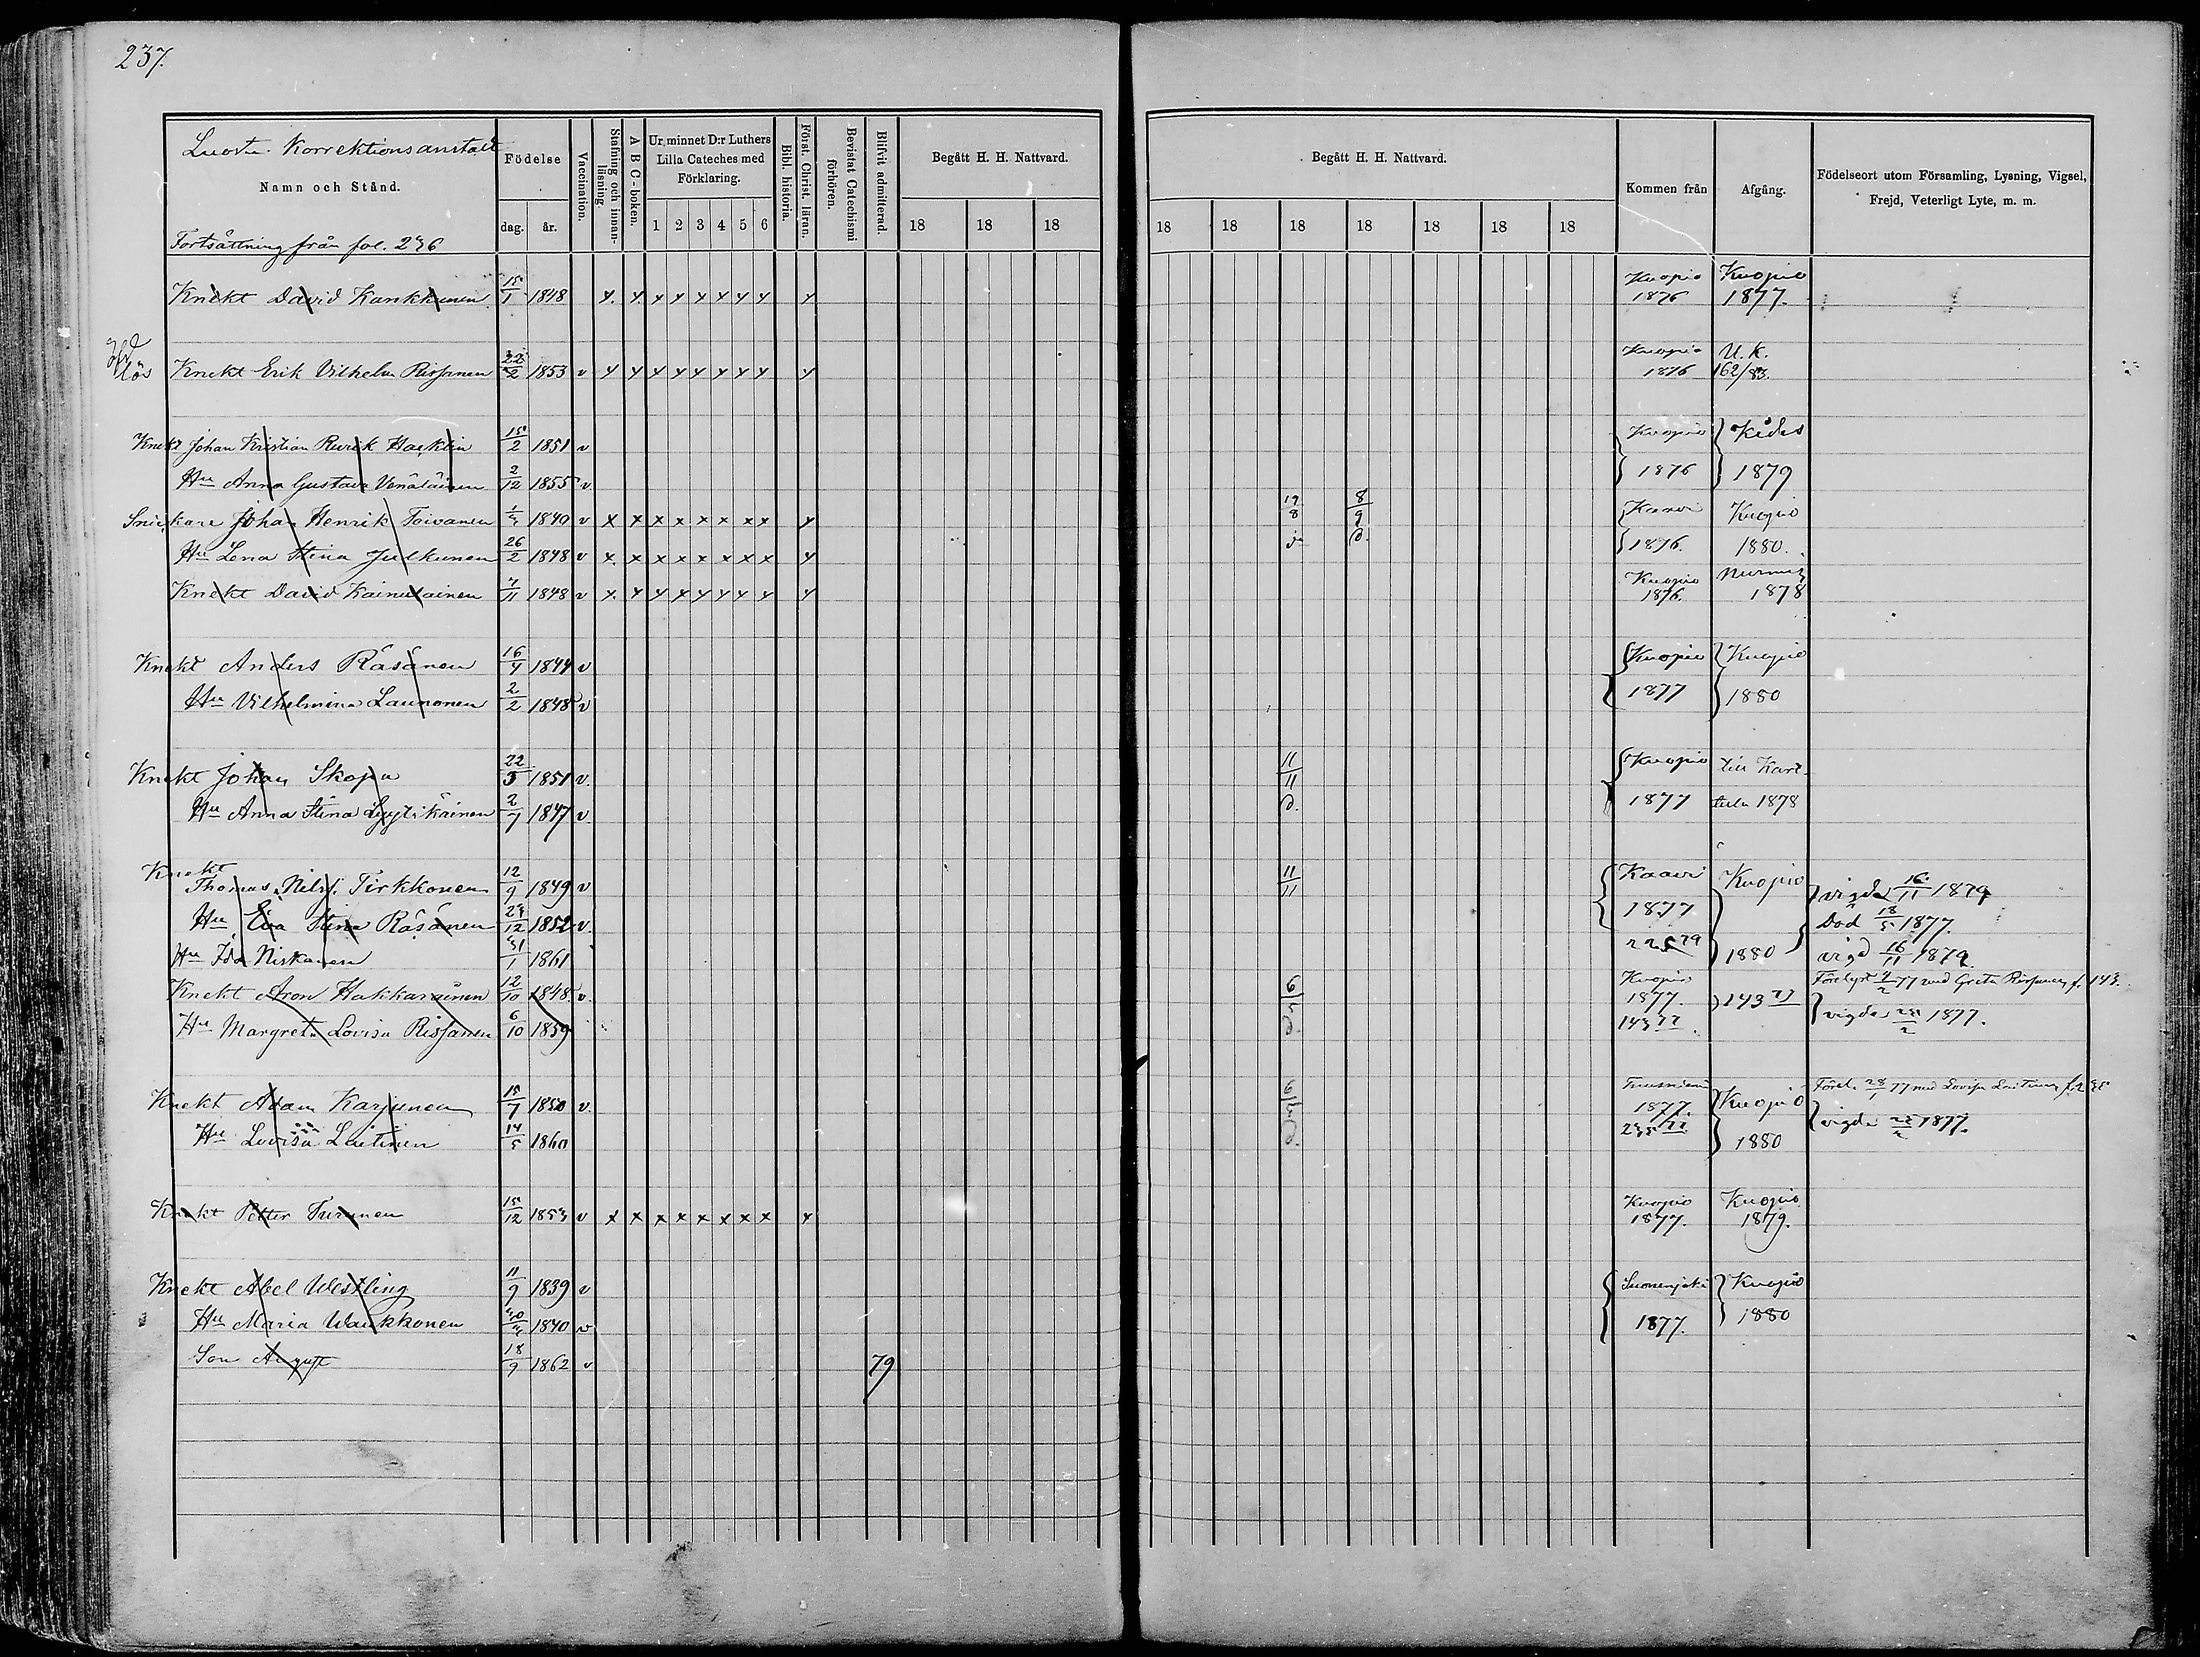 237.
Luosta Korrektionsanstalt
Namn och Stånd.
Fortsättning från fol. 236
Födelse
dag. år.
Vaccination.
Stafning och innanläsning.
A B C-boken.
Ur minnet D:r Luthers Lilla Cateches med Förklaring.
1 2 3 4 5 6
Bibl. historia.
Först. Christ. läran.
Bevistat Catechismi förhören.
Blifvit admitterad.
Begått H. H. Nattvard.
18 18 18
Begått H. H. Nattvard.
18 18 18 18 18 18 18
Kommen från
Afgång.
Födelseort utom Församling, Lysning, Vigsel,
Frejd, Veterligt Lyte, m. m.
Knekt David Kankkunen 15/1 1848 Kuopio 1876 Kuopio 1877.
lös Knekt Erik Vilhelm Rissanen 22/2 1853 v Kuopio 1876 U.K. 162/83.
Knekt Johan Kristian Rurik Hacklin 15/2 1851 v Kuopio 1876 Kides 1879
Hu Anna Gustava Venäläinen 2/12 1855 v
Snickare Johan Henrik Toivanen 1849 v x x x x x x x x 19/8 8/9 Kaavi 1876. Kuopio 1880.
Hu Lena Stina Julkunen 26/2 1848 v x x x x x x x x
Knekt David Kainulainen 7/11 1848 v Kuopio 1876. Nurmis 1878
Knekt Anders Räsänen 16/4 1844 v Kuopio 1877 Kuopio 1880
Hu Vilhelmina Launonen 2/2 1848 v
Knekt Johan Skopa 22/5 1851 v. 11/11 Kuopio 1877 till Karttula 1878
Hu Anna Stina Lyytikäinen 2/7 1847 v.
Knekt Thomas Nilsf. Tirkkonen 12/9 1849 v 11/11 Kaavi 1877 Kuopio 1880 vigde 16/11 1879
Hu Eva Stina Räsänen 1852 v. Död 18/5 1877.
Hu Ida Niskanen 31/1 1861 vigd 16/11 1879.
Knekt Aron Hakkarainen 12/10 1848. v. Kuopio 1877. 143 77 143 77
Hu Margreta Lovisa Rissanen 6/10 1859 vigde 1877.
Knekt Adam Karjunen 15/7 1850 v. Tuusniemi 1877. Kuopio 1880
Hu Lovisa Laitinen 14/5 1860 vigde 1877.
Knekt Petter Turunen 15/12 1853 v x x x x x x x x Kuopio 1877. Kuopio 1879.
Knekt Abel Westling 11/9 1839 v Suonenjoki 1877. Kuopio 1880
Hu Maria Waukkonen 1840 v
Son August 18/9 1862 v 79